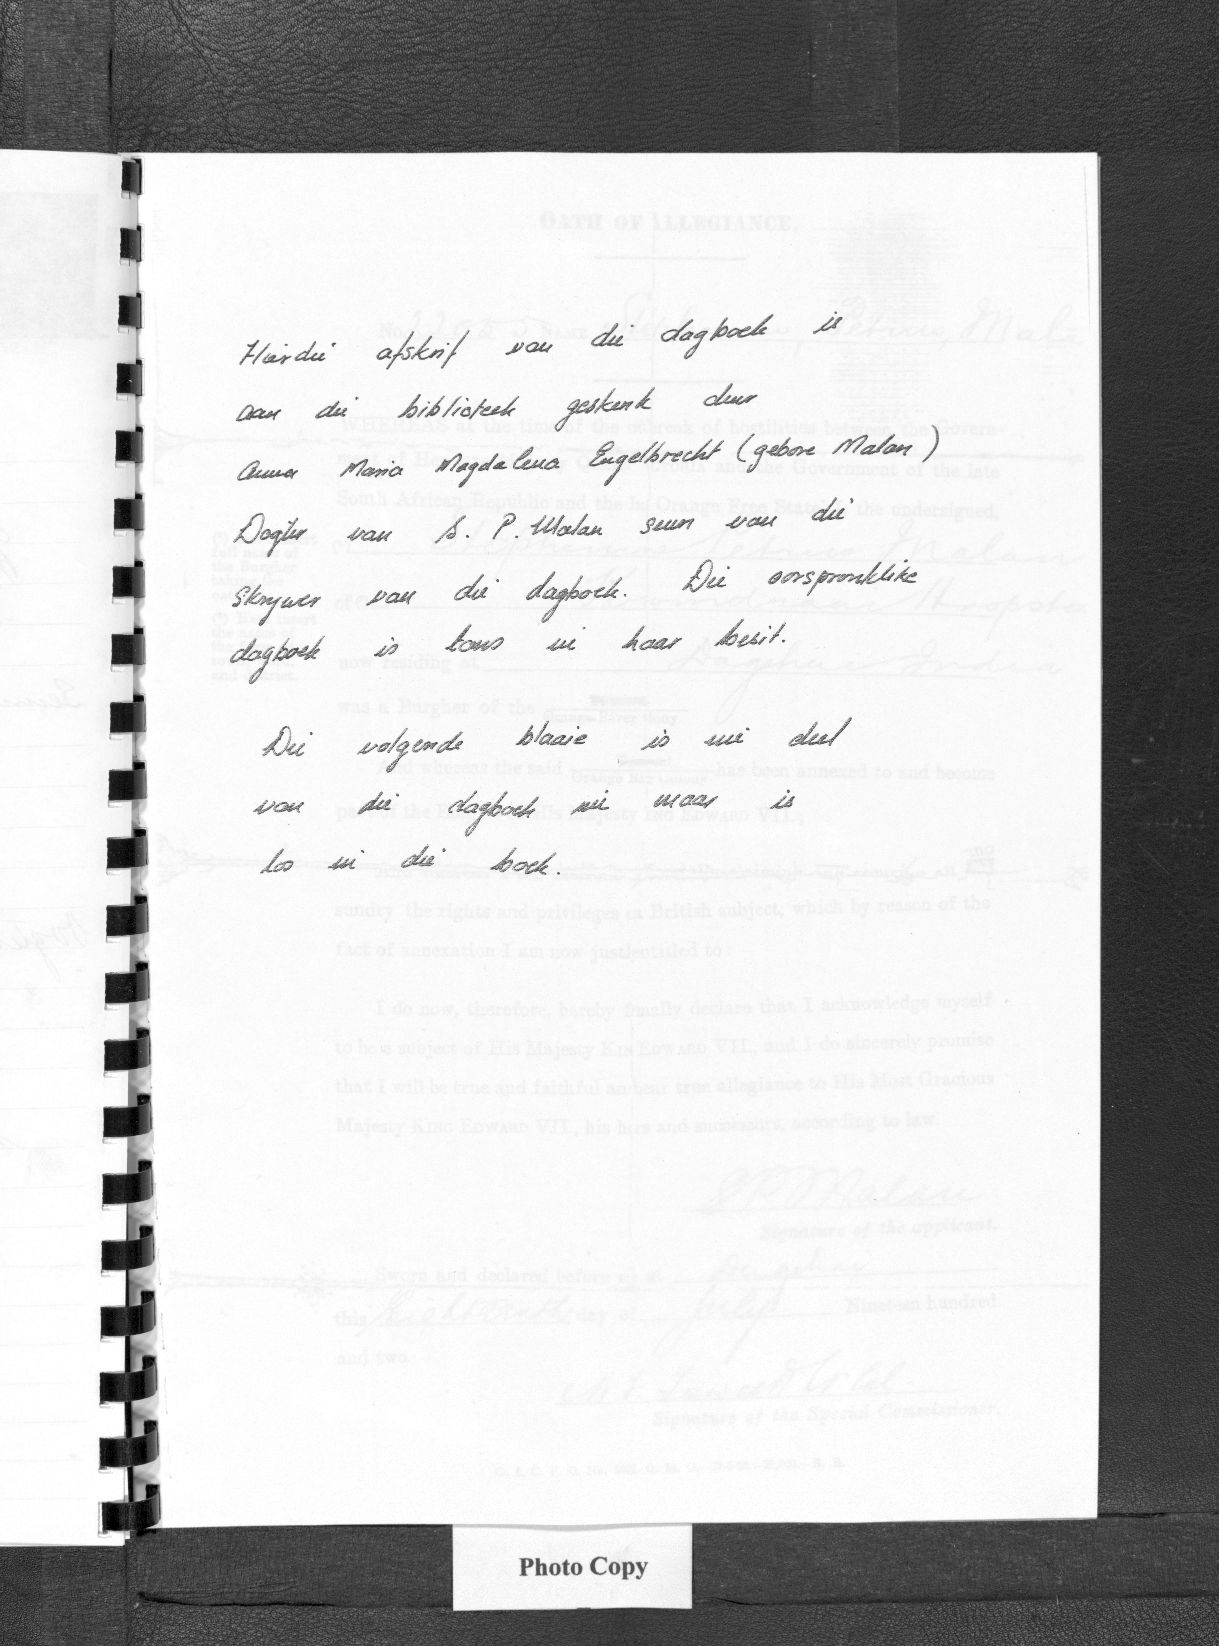 Hierdie afskrif van die dagboek is
aan die biblioteek geskenk deur
Anna Maria Magdalena Engelbrecht (gebore Malan)
Dogter van S. P. Malan seun van die
skrywer van die dagboek. Die oorspronklike
dagboek is tans in haar besit.
Die volgende blaaie is nie deel
van die dagboek nie maar is
los in die boek.
OATH OF ALLEGIANCE.
No. NAME Petrus Mala
WHEREAS at the time of the outbreak of hostilities between the Govern-
and the Government of the late
South African Republic and the Orange Free State the undersigned,
full name of
the Burgher
Petrus Malan
of
now residing at India
was a Burgher of the
And whereas the said has been annexed to and become
Majesty EDWARD VII.;
sundry the rights and privileges British subject, which by reason of the
fact of annexation I am now entitled to:
I do now, therefore, hereby finally declare that I acknowledge myself
to be a subject of His Majesty EDWARD VII., and I do sincerely promise
that I will be true and faithful and bear true allegiance to His Most Gracious
Majesty KING EDWARD VII., his and successors, according to law.
S P Malan
Signature of the applicant.
Sworn and declared before at
this Eighteenth day of July Nineteen hundred
and two.
Signature of the Special Commissioner.
Photo Copy